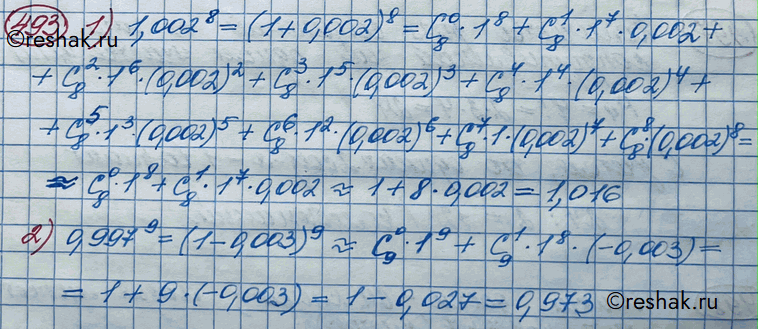 493 1) 1,002⁸ = (1+0,002)⁸ = C₈⁰·1⁸ + C₈¹·1⁷·0,002 +
©reshak.ru
+ C₈²·1⁶·(0,002)² + C₈³·1⁵·(0,002)³ + C₈⁴·1⁴·(0,002)⁴ +
+ C₈⁵·1³·(0,002)⁵ + C₈⁶·1²·(0,002)⁶ + C₈⁷·1·(0,002)⁷ + C₈⁸·(0,002)⁸ =
≈ C₈⁰·1⁸ + C₈¹·1⁷·0,002 ≈ 1 + 8·0,002 = 1,016
2) 0,997⁹ = (1-0,003)⁹ ≈ C₉⁰·1⁹ + C₉¹·1⁸·(-0,003) =
= 1 + 9·(-0,003) = 1 - 0,027 = 0,973
©reshak.ru